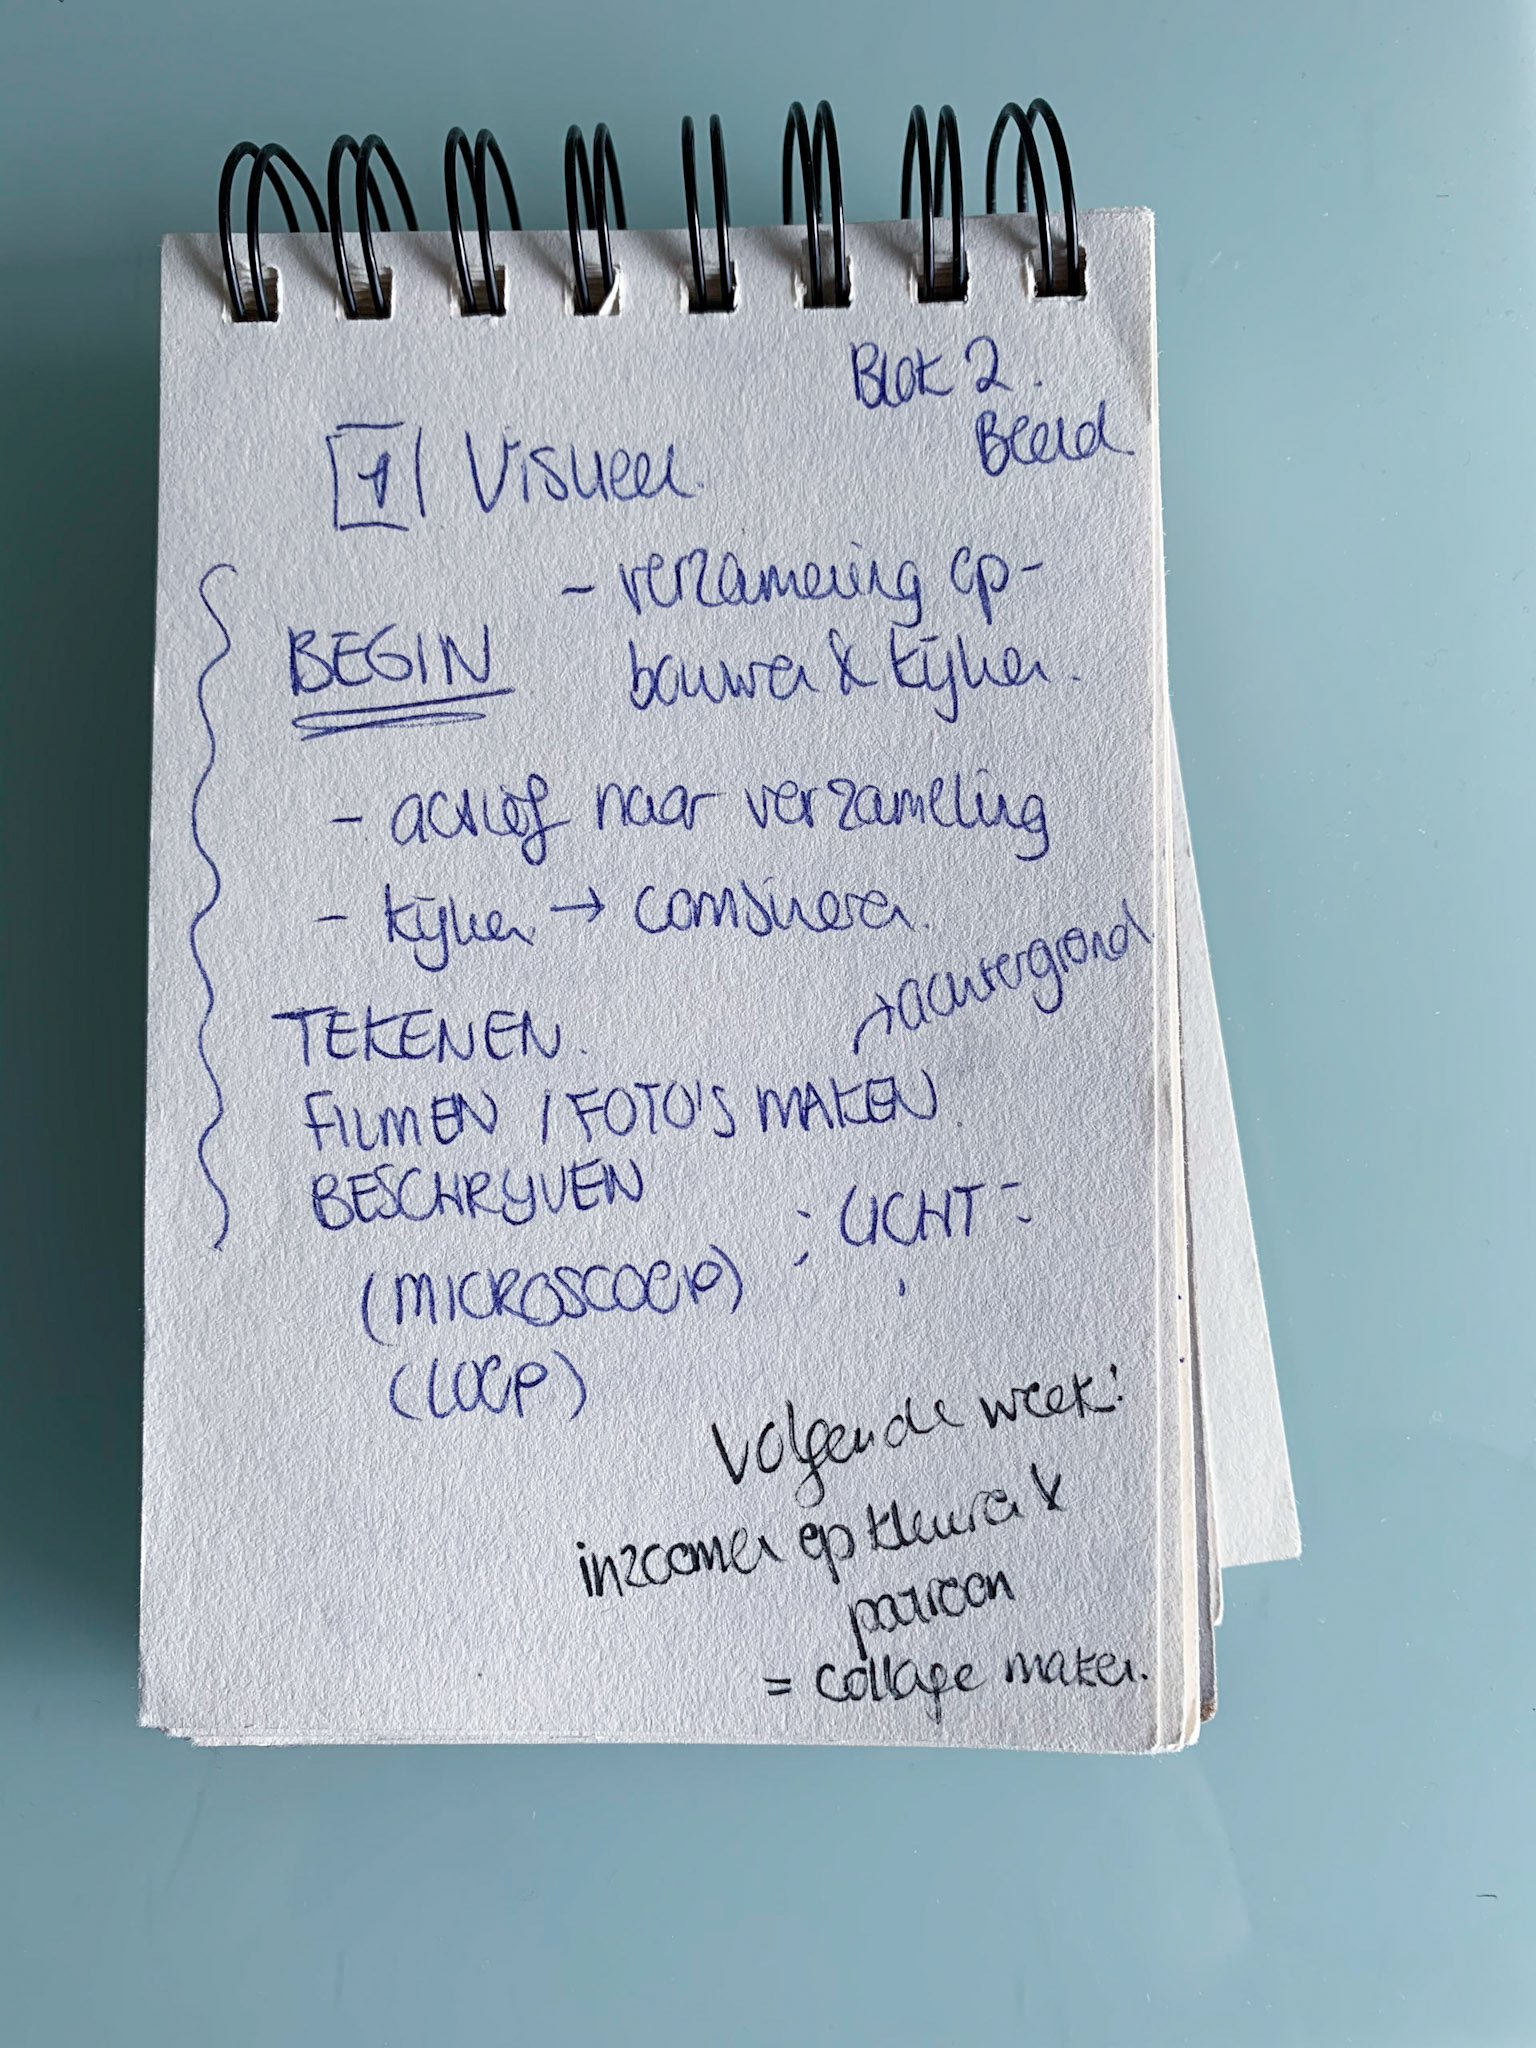 Blok 2.
Beeld
1 Visueel.
- verzameling op-
BEGIN
bouwen & kijken.
- actief naar verzameling
- kijken → combineren.
→ achtergrond
TEKENEN.
FILMEN / FOTO'S MAKEN
BESCHRIJVEN
LICHT
(MICROSCOOP)
(LOEP)
Volgende week:
inzoomen op kleuren &
patroon
= collage maken.